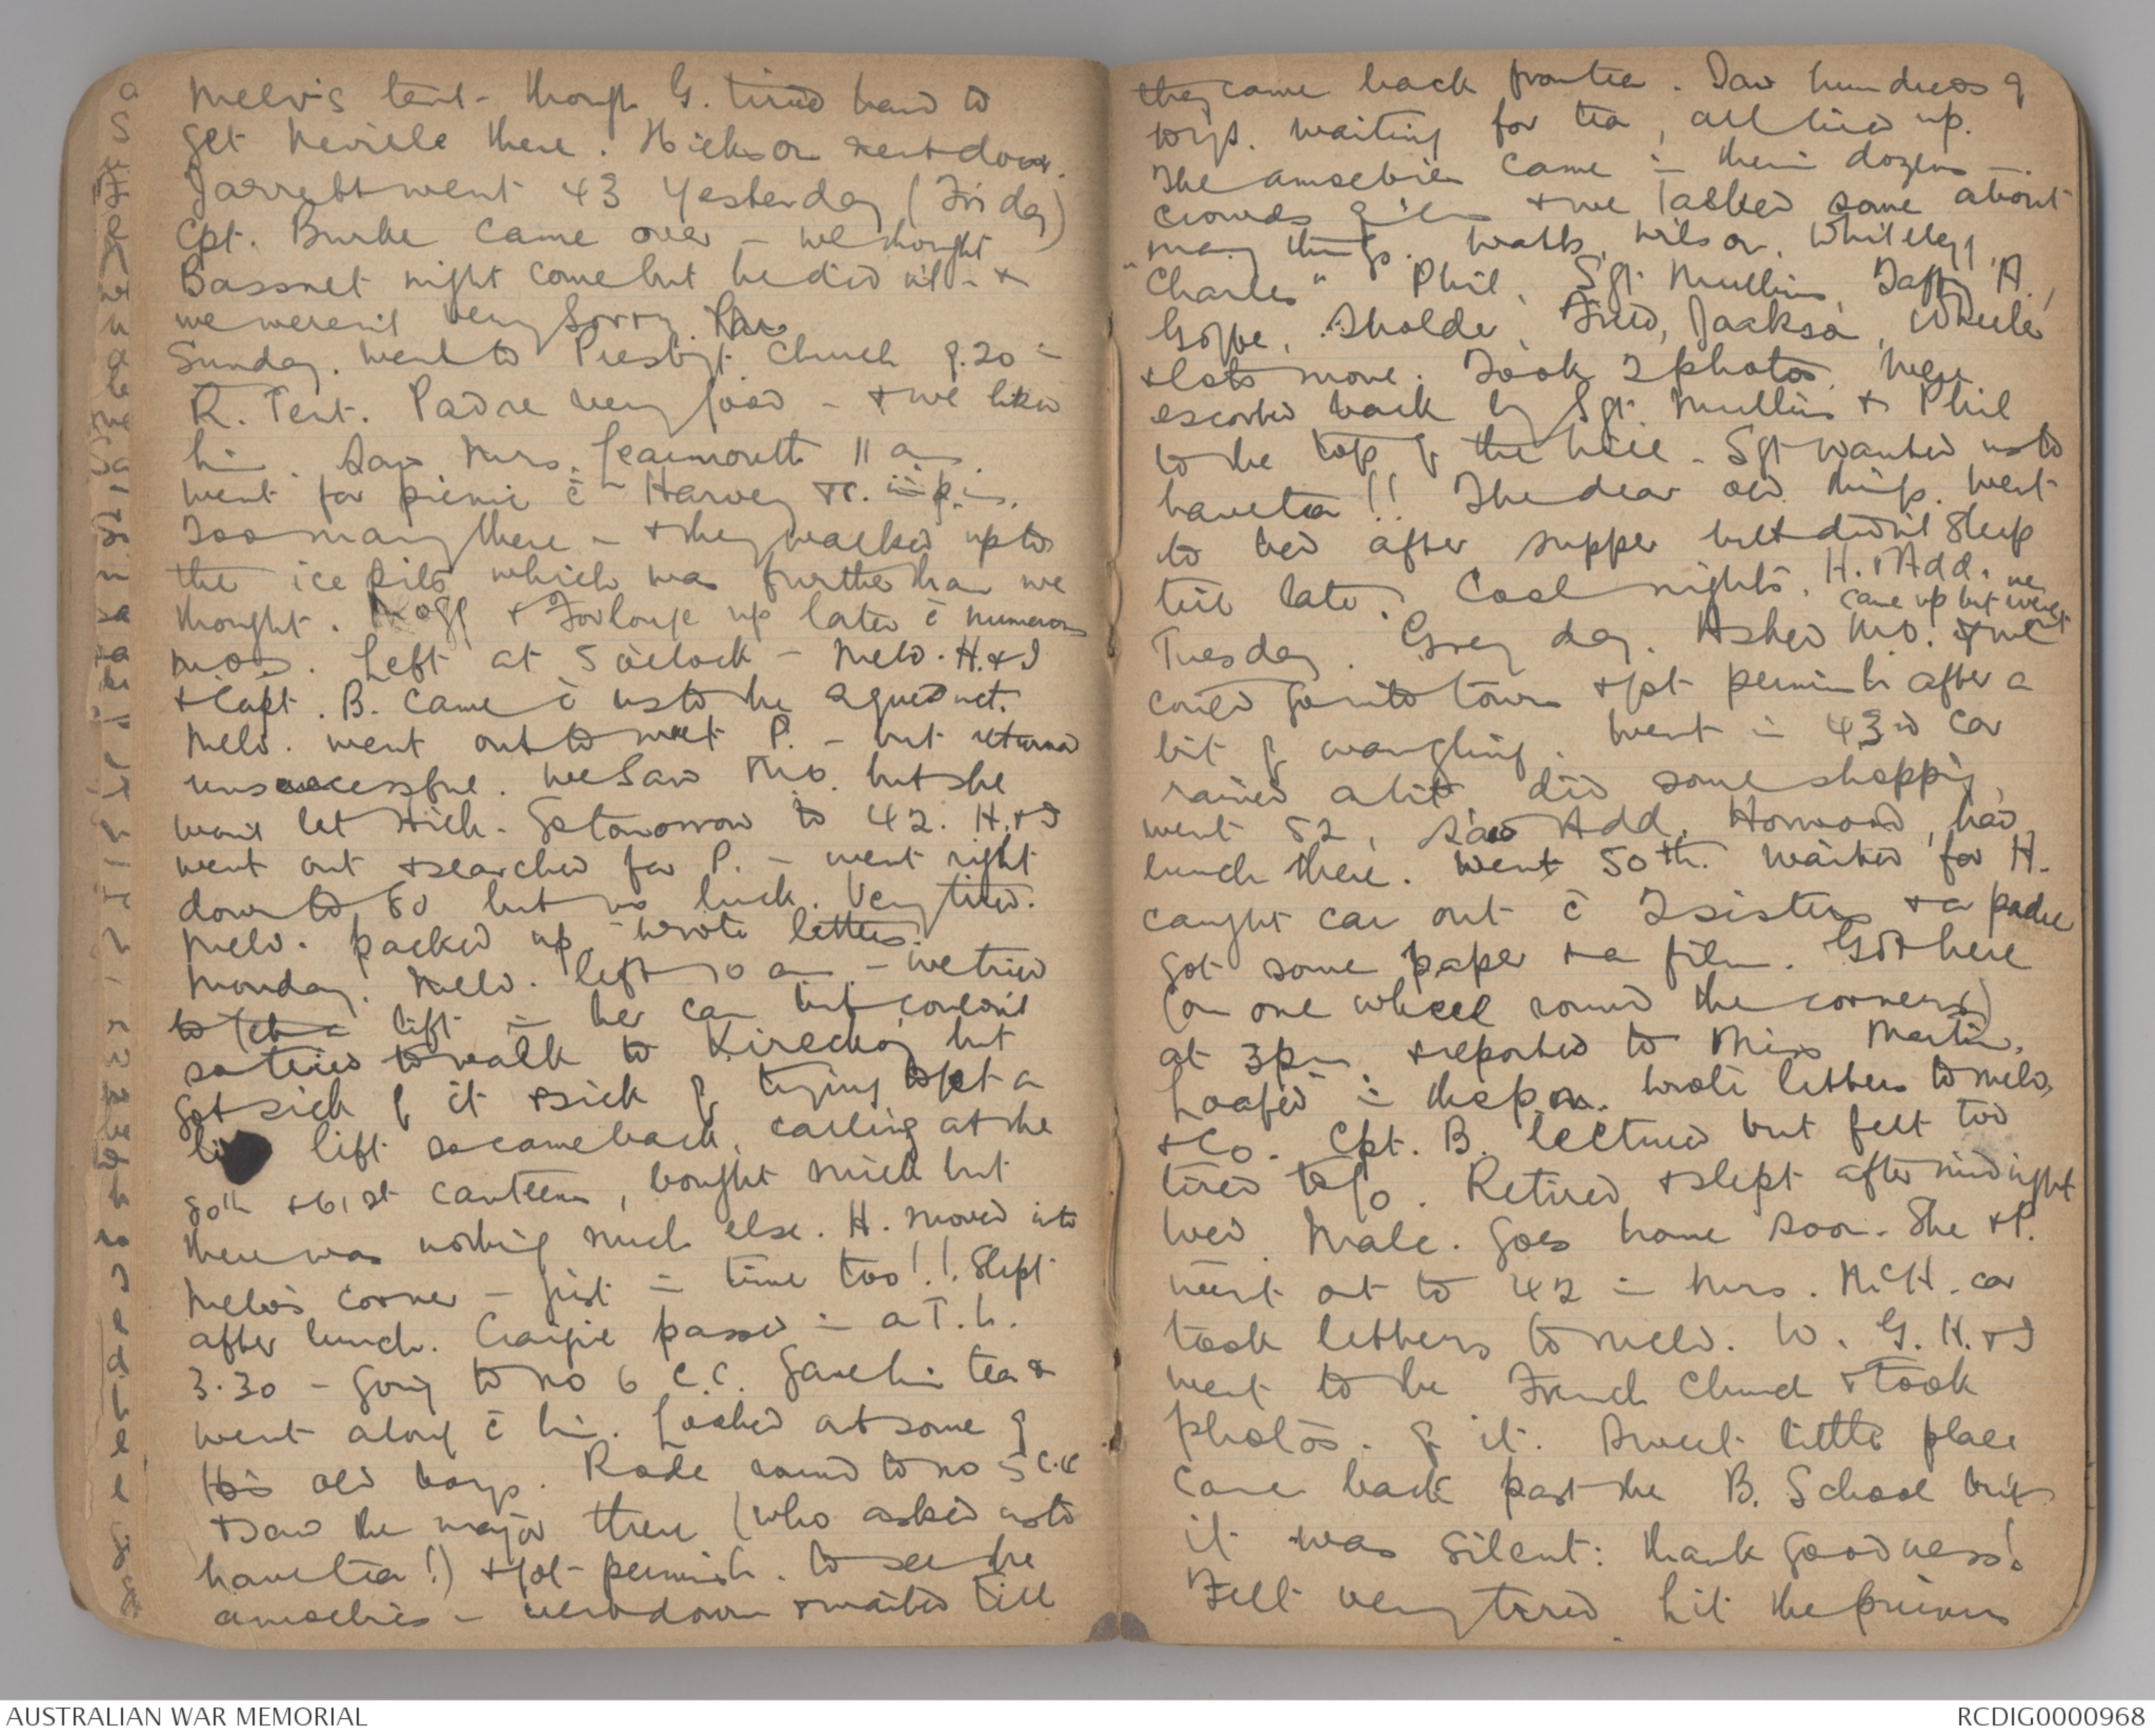 Melv's tent - though G. tried hard to
get Neville there. Hickson next door.
Jarrett went 43 yesterday (Friday)
Cpt. Burke came over - we thought
Bassnet might come but he did n't - &
we weren't very sorry.
Sunday. went to Presbyt. Church 9.20 in
R. Tent. Padre very good - & we liked
him. Saw Mrs. Learmonth 11 am.
went for picnic c̄ Harvey &c. in p.m.
Too many there - & they walked up to
the ice pits which was further than we
thought. & Forlonge up later c̄ numerous
M.O's. Left at 5 o'clock - Melv. H. & I
& Capt. B. came c̄ us to the aqueduct.
Melv. went out to meet P. - but returned
unsuccessful. We saw M.O. but she
won't let Hick. go tomorrow to 42. H. & I
went out & searched for P. - went right
down to 60 but no luck. Very tired.
Melv. packed up - wrote letters.
Monday. Melv. left 10 am - we tried
to get a lift in her car but couldn't
so tried to walk to Kirechkoj but
got sick of it & sick of trying to get a
lift so came back, calling at the
80th & 61st canteens, bought milk but
there was nothing much else. H. moved into
Melv's corner - just in time too!! Slept
after lunch. Craigie passed in a T.L.
3.30 - going to no 6 C.C. gave him tea &
went along c̄ him. Looked out some of
His old boys. Rode round to no 5 C.C
& saw the major there (who asked us to
have tea!) & got permish. to see the
amoebics - went down & waited till
they came back from tea. Saw hundreds of
boys. waiting for tea, all lined up.
The amoebics came in their dozens -
crowds of 'em & we talked some about
many things. Watts, Wilson, Whitelegg,
"Charles" Phil, Sgt Mullins, Taffy A.,
Goffe, Fred, Jackson, Wheeler
& lots more. Took 2 photos. Were
escorted back by Sgt. Mullins & Phil
to the top of the hill. Sgt wanted us to
have tea!! The dear old thing. went
to bed after supper but didn't sleep
till late. Cool nights. H. & Add. came up but we weren't
Tuesday. Grey day. Asked M.O. if we
could go into town & got permish after a
bit of wangling. Went in 43rd car
rained a bit, did some shopping,
went 52, saw Add, Horwood, had
lunch there. Went 50th. waited for H.
caught car out c̄ 2 sisters & a padre
got some paper & a film. Got here
(on one wheel round the corners)
at 3 pm. & reported to Miss Martin.
Loafed in the p.m. wrote letters to Melv.
& Co. Cpt. B. lectured but felt too
tired to go. Retired & slept after midnight
Wed. Malc. goes home soon. She & P.
went out to 42 in Mrs. McH. car
took letters to Melv. W. G. H. & I
went to the French Church & took
photos. of it. Sweet little place
Came back past the B. School but
it was silent: thank goodness!
Felt very tired. hit the
AUSTRALIAN WAR MEMORIAL
RCDIG0000968